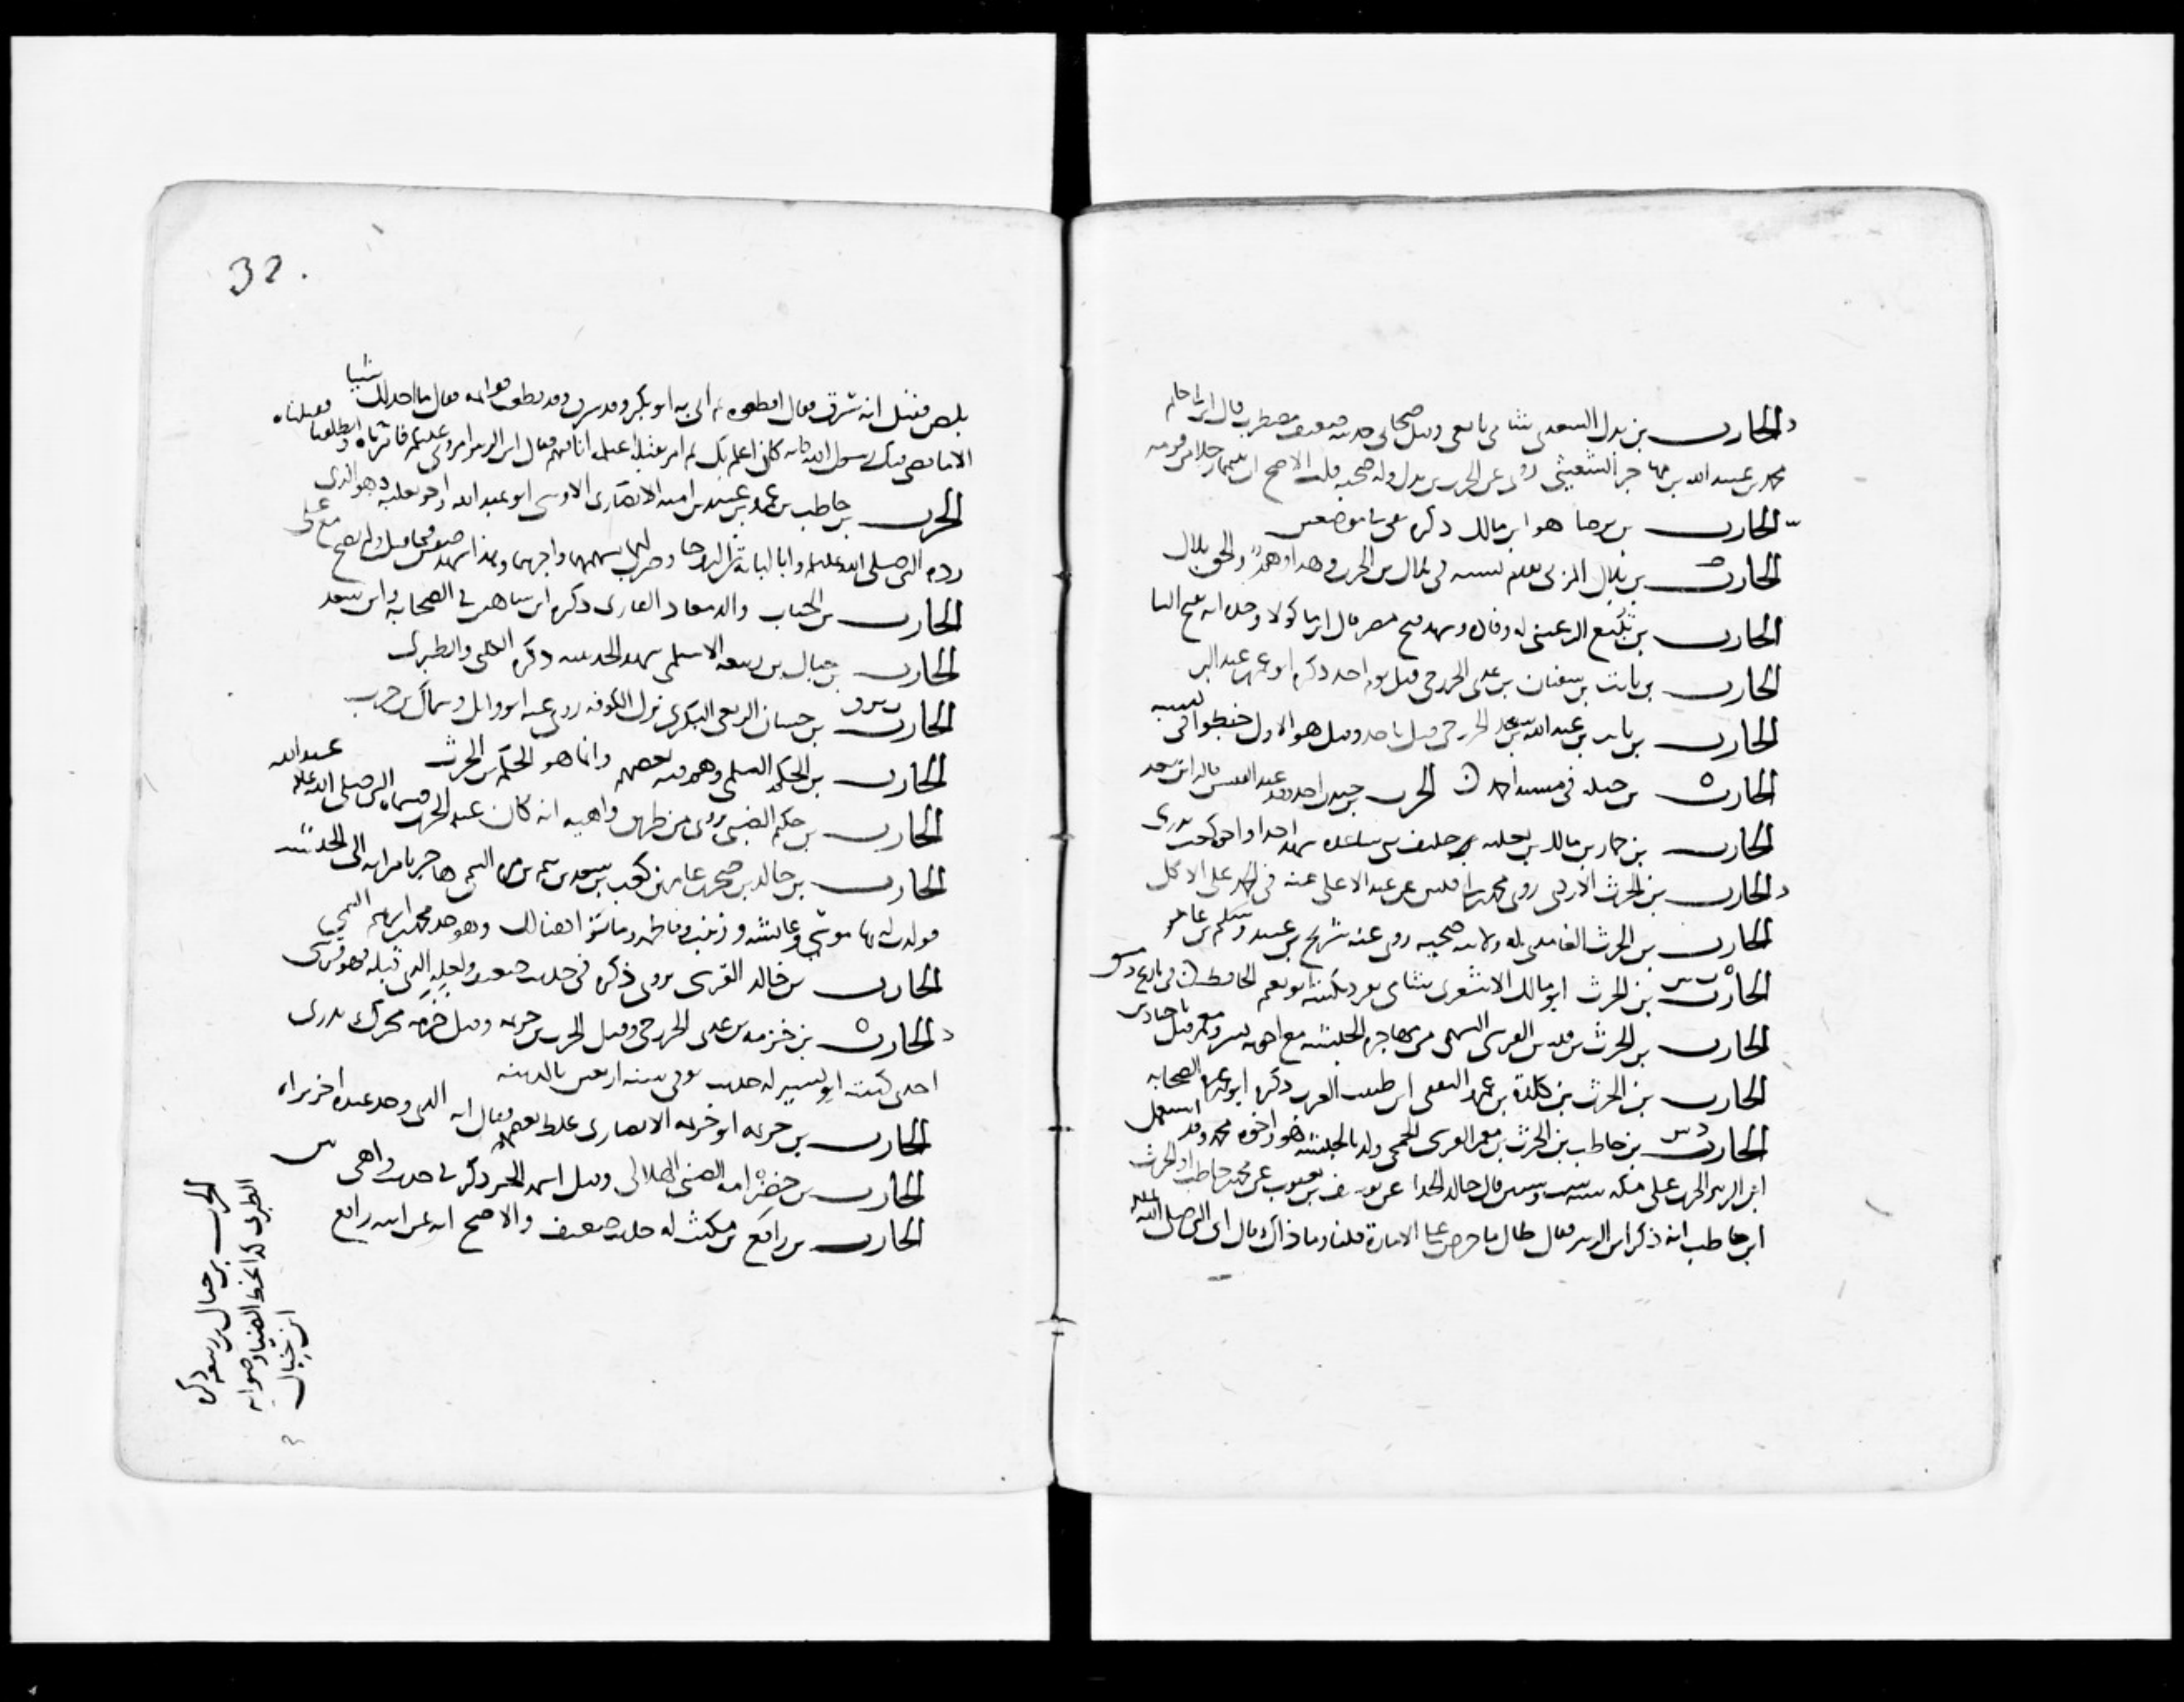 الحارث بن بدل السعدي شامي تابعي وقيل صحابي حديثه ضعيف مضطرب قال ابن ابي حاتم
محمد بن عبيد الله بن مهاجر الشعيثي روى عن الحرث بن بدل وله صحبه قلت الاصح رجلا من قومه
الحارث بن برصا هو ابن مالك ذكره في موضعين
الحارث بن بلال المزني تقدم نسبه في بلال بن الحرث وهذا وهم والحق بلال
الحارث بن تبيع الرعيني له وفادة وشهد فتح مصر قال ابن ماكولا وجده انه بفتح التا
الحارث بن ثابت بن سفيان بن عدي الخزرجي قتل يوم احد ذكره ابو عمر بن عبد البر
الحارث بن ثابت بن عبد الله بن سعد الخزرجي قتل باحد وقيل هو الاول خبطوا في نسبه
الحارث بن جبله في مسند احمد الحرث بن جندب احد وفد عبد القيس قاله ابن سعد
الحارث بن حمار بن مالك بن ثعلبه حليف بني ساعده شهد احدا واخوه كعب بدري
الحارث بن الحرث الازدي روى محمد بن ابي قيس عن عبد الاعلى عنه في الحمد على الاكل
الحارث بن الحرث الغامدي له ولابيه صحبه روى عنه شريح بن عبيد وسليم بن عامر
الحارث بن الحرث ابو مالك الاشعري شامي تفرد بكنيته ابو نعيم الحافظ
الحارث بن الحرث بن قيس القرشي السهمي من مهاجره الحبشه مع اخوته بشر ومعمر قتل باجنادين
الحارث بن الحرث بن كلدة بن عمرو الثقفي ابن طبيب العرب ذكره ابو عمر في الصحابه
الحارث بن حاطب بن الحرث بن معمر القرشي الجمحي ولد بالحبشه هو واخوه محمد وقد استعمل
ابن الزبير الحرث على مكه سنه ست وستين قال خالد الحذا عن يوسف بن يعقوب عن محمد بن حاطب او الحرث
ابن حاطب انه ذكر ابن الزبير فقال طال ما حرص على الامارة قلنا وما ذاك قال اتى النبي صلى الله عليه
32.
بلص فقيل انه سرق فقال اقطعوه ثم اتي به ابو بكر وقد سرق وقد قطعت قوائمه فقال ما اجد لك شيئا
الا ما قضى فيك رسول الله فانه كان اعلم بك ثم امر بقتله اغيلمه انا فيهم فقال ابن الزبير امروني عليكم فامرناه وانطلقنا فقتلناه
الحرث بن حاطب بن عمرو بن عبيد بن اميه الانصاري الاوسي ابو عبد الله اخو ثعلبه وهو الذي
رده النبي صلى الله عليه وابا لبابة من الروحا وضرب لهما بسهمهما واجرهما وشهد صفين فيما قيل ولم يصح مع علي
الحارث بن الحباب والد معاذ القاري ذكره ابن شاهين في الصحابه وابن سعد
الحارث بن حبال بن ربيعه الاسلمي شهد الحديبيه ذكره الكلبي والطبري
الحارث بن حسان الربعي البكري نزل الكوفه روى عنه ابو وائل وسماك بن حرب
الحارث بن الحكم السلمي وهم فيه بعضهم وانما هو الحكم بن الحرث
الحارث بن حكيم الضبي يروى من طرق واهيه انه كان عبد الحرث فسماه النبي صلى الله عليه عبد الله
الحارث بن خالد بن صخر بن عامر بن كعب بن سعد بن تيم بن مره التيمي هاجر بامراته الى الحبشه
فولدت له بها موسى وعايشه وزينب وفاطمه وماتوا هنالك وهو جد محمد بن ابراهيم التيمي
الحارث بن خالد القرشي يروى ذكره في حديث ضعيف ولعله الذي قبله فهو قرشي
الحارث بن خزمه بن عدي الخزرجي وقيل الحرث بن خزيمه وقيل خزمه محرك بدري
احدي كنيته ابو بشير له حديث توفي سنه اربعين بالمدينه
الحارث بن خزيمه ابو خزيمه الانصاري غلط بعضهم فقال انه الذي وجد عنده اخر براه
الحارث بن خضرامه الضبي الهلالي وقيل اسمه الحر ذكر في حديث واهي
الحارث بن رافع بن مكيث له حديث ضعيف والاصح انه عن ابيه رافع
الحرث بن حبال بن ربيعه ذكره
الطبري كذا بخط الضيا وصوابه
ابن حبال